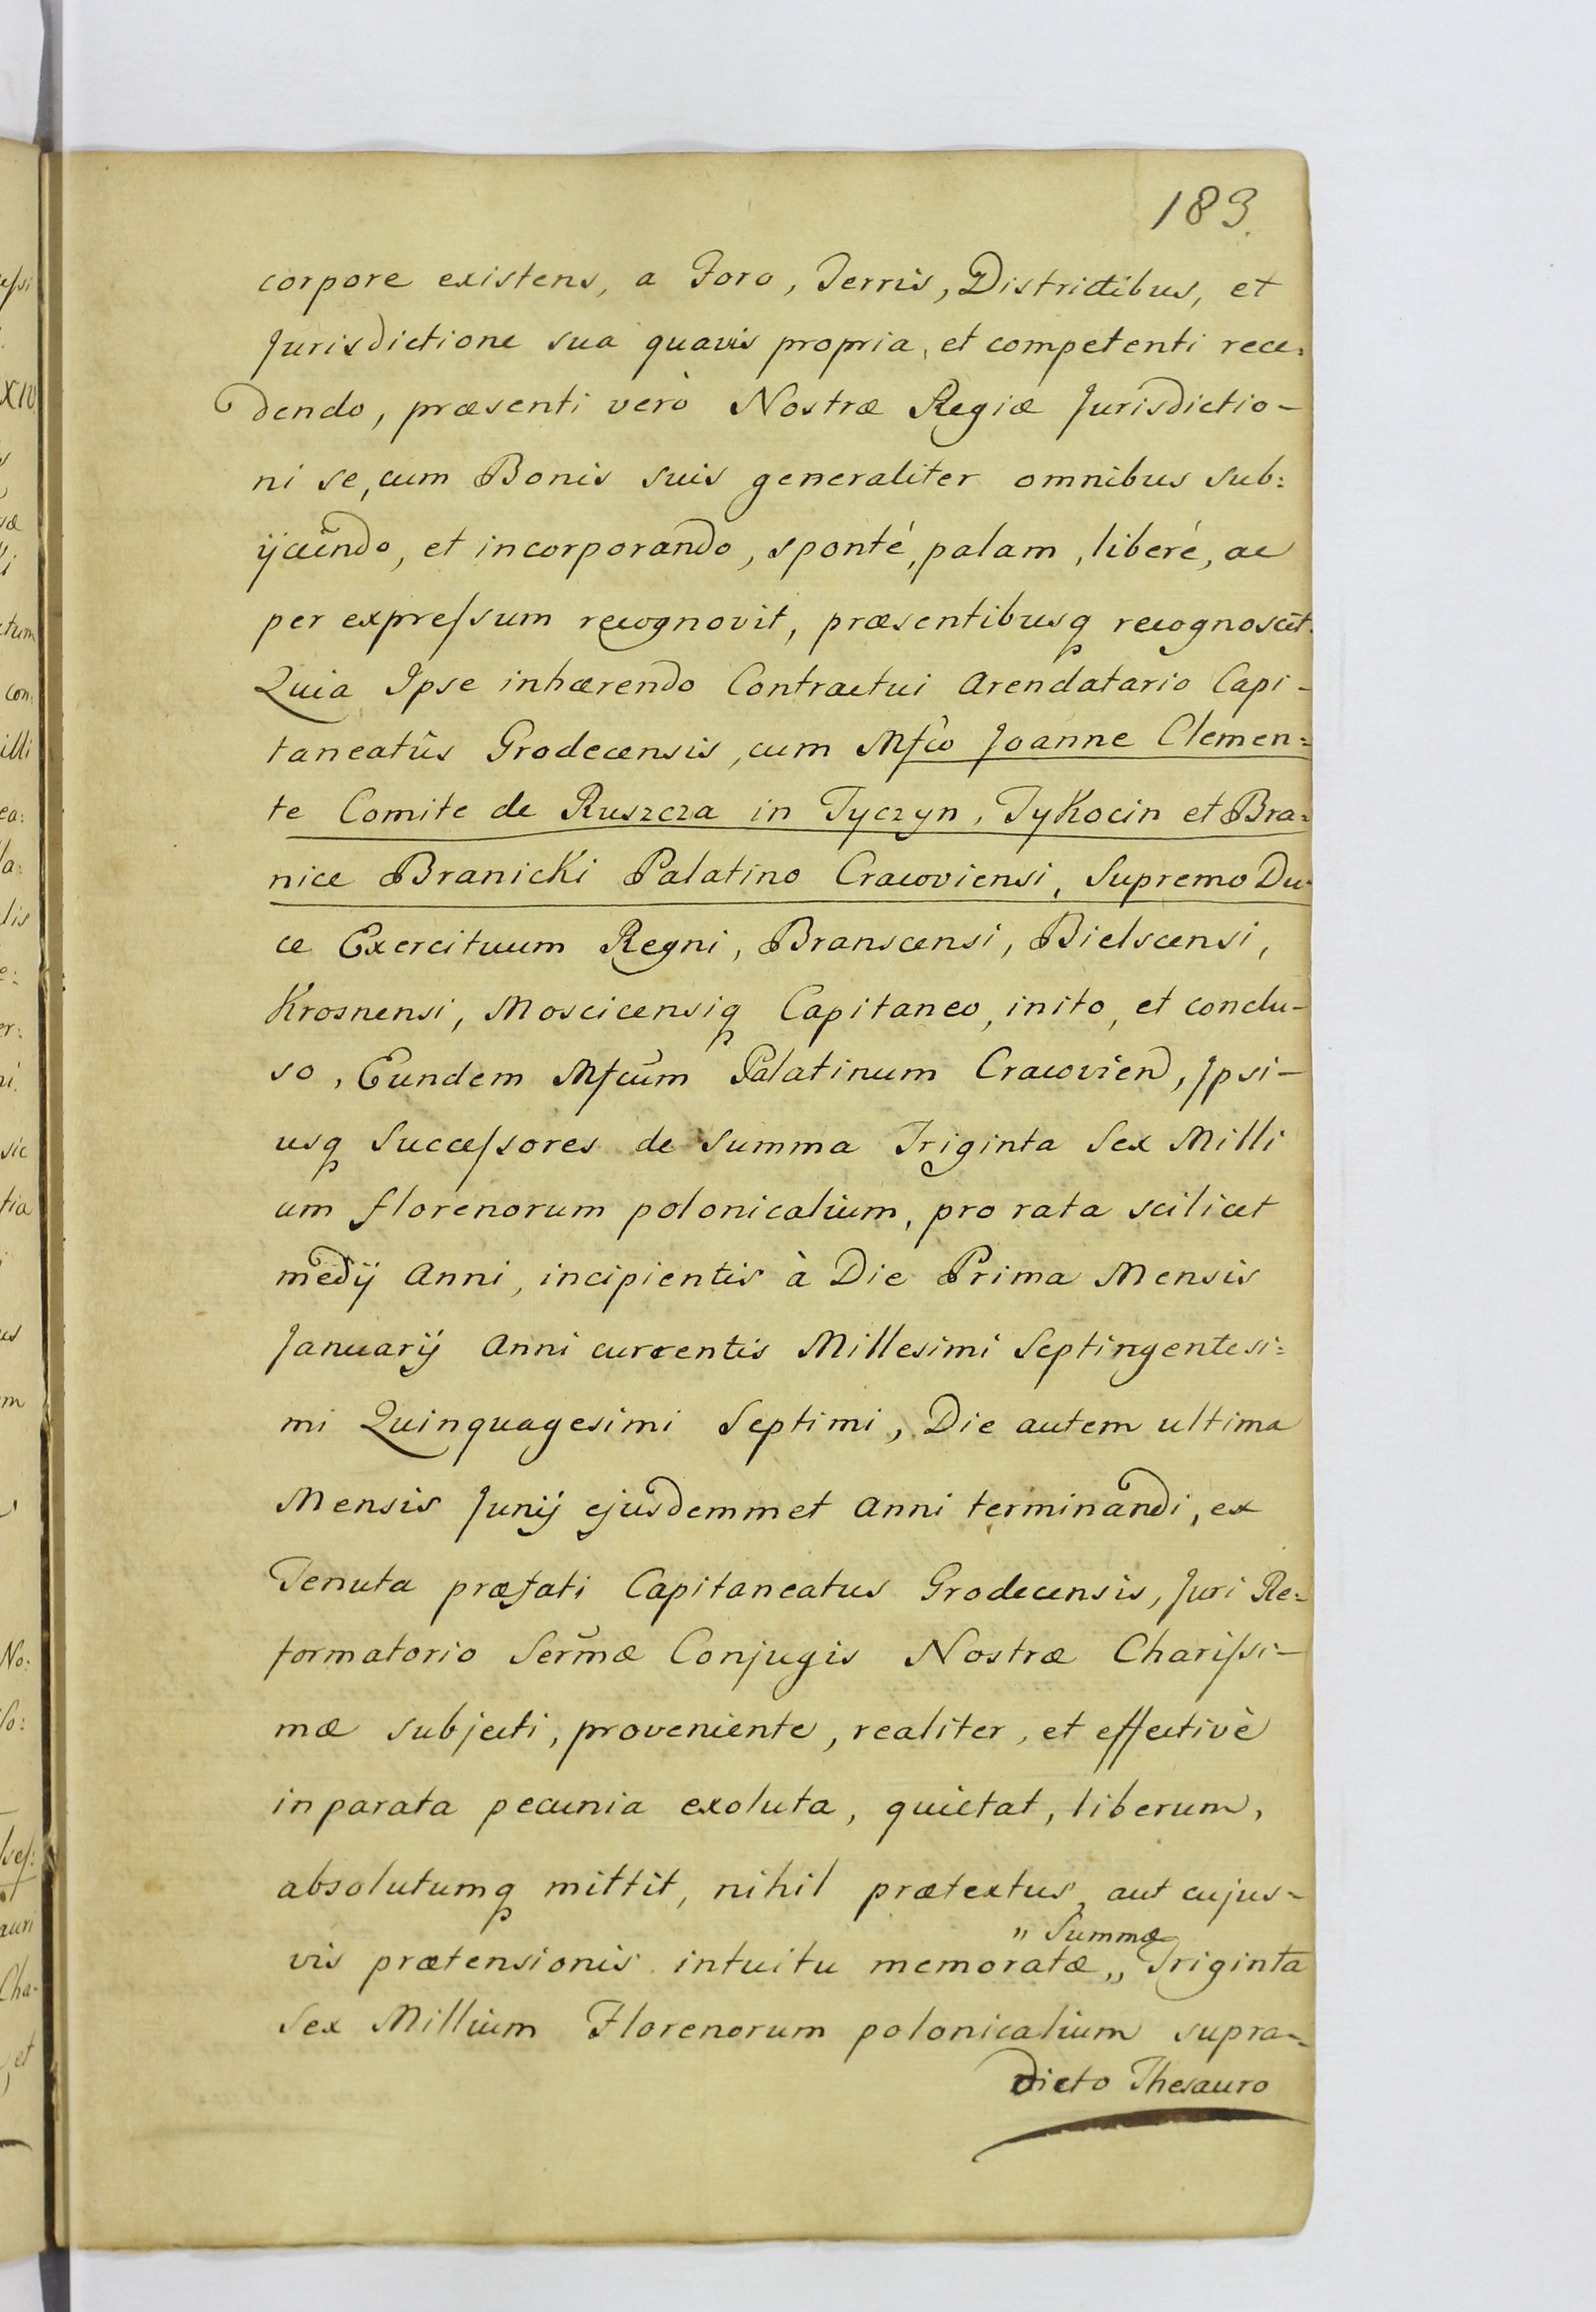 183.
corpore existens, a Foro, Terris, Districtibus, et
Jurisdictione sua quavis propria, et competenti rece:
dendo, præsenti verò Nostræ Regiæ Jurisdictio-
ni se, cum Bonis suis generaliter omnibus sub:
ijciendo, et incorporando, sponté, palam, liberé, ac
per expressum recognovit, præsentibusq recognoscit.
Quia Ipse inhærendo Contractui Arendatario Capi-
taneatûs Grodecensis, cum Mfco Joanne Clemen=
te Comite de Ruszcza in Tyczyn, Tykocin et Bra=
nice Branicki Palatino Cracoviensi, Supremo Du-
ce Exercituum Regni, Branscensi, Bielscensi,
Krosnensi, Moscicensiq Capitaneo, inito, et conclu-
so, Eundem Mfcum Palatinum Cracovien, Ipsi-
usq Successores de Summa Triginta Sex Milli
um florenorum polonicalium, pro rata scilicet
medij Anni, incipientis à Die Prima Mensis
Januarij Anni currentis Millesimi Septingentesi=
mi Quinquagesimi Septimi, Die autem ultima
Mensis Junij ejusdemmet Anni terminandi, ex
Tenuta præfati Capitaneatus Grodecensis, Juri Re=
formatorio Sermæ Conjugis Nostræ Charissi-
mæ subjecti, proveniente, realiter, et effectivè
in parata pecunia exoluta, quietat, liberum,
absolutumq mittit, nihil prætextus, aut cujus-
" Summæ
vis prætensionis intuitu memoratæ „ Triginta
Sex Millium Florenorum polonicalium supra-
dicto Thesauro